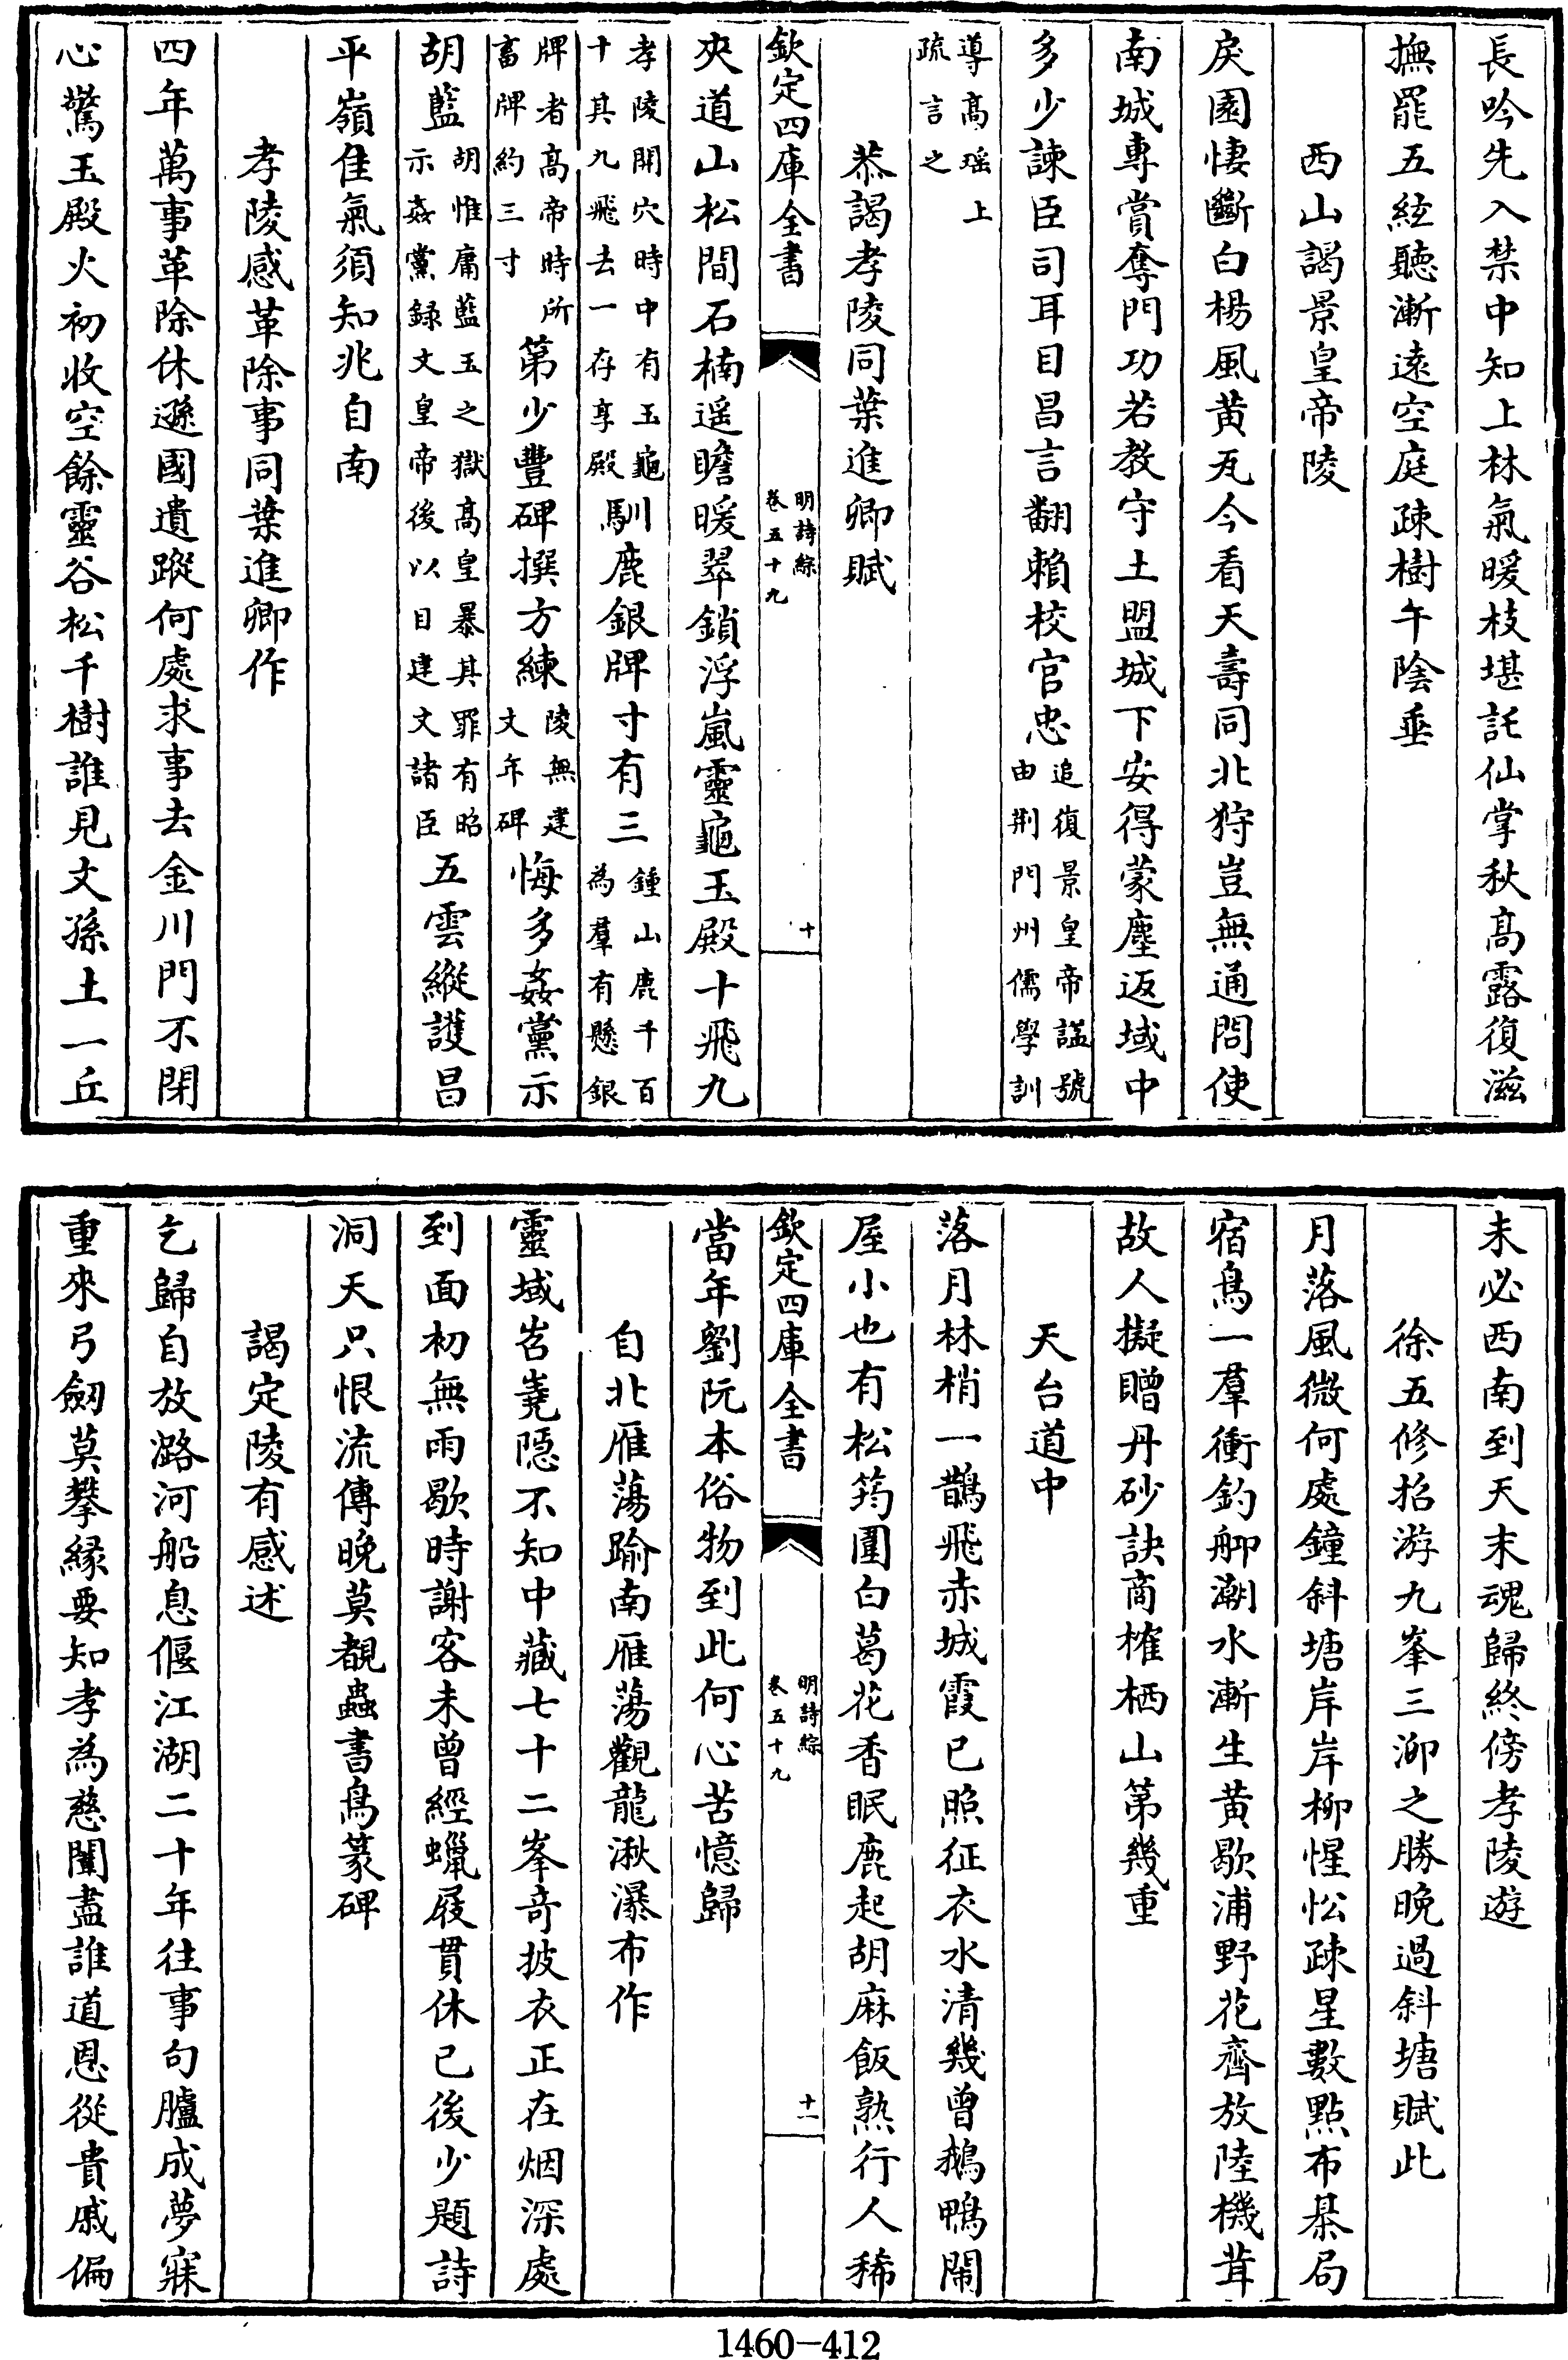 長吟先入禁中知上林氣暖枝堪託仙掌秋髙露復滋
撫罷五絃聽漸遠空庭疎樹午陰垂
西山謁景皇帝陵
戾園悽斷白楊風黄瓦今看天壽同北狩豈無通問使
南城專賞奪門功若教守土盟城下安得蒙塵返域中
多少諫臣司耳目昌言翻賴校官忠追復景皇帝諡號由荆門州儒學訓
導髙瑶上疏言之
恭謁孝陵同葉進卿賦
欽定四庫全書
明詩綜
卷五十九
十
夾道山松間石楠遥瞻暖翠鎖浮嵐靈龜玉殿十飛九
孝陵開穴時中有玉龜十其九飛去一存享殿馴鹿銀牌寸有三鍾山鹿千百為羣有懸銀
牌者髙帝時所畜牌約三寸第少豐碑撰方練陵無建文年碑悔多姦黨示
胡藍胡惟庸藍玉之獄髙皇暴其罪有昭示姦黨録文皇帝後以目建文諸臣五雲縱護昌
平嶺隹氣須知兆自南
孝陵感革除事同葉進卿作
四年萬事革除休遜國遺蹤何處求事去金川門不閉
心驚玉殿火初收空餘靈谷松千樹誰見文孫土一丘
未必西南到天末魂歸終傍孝陵遊
徐五修招游九峯三泖之勝晩過斜塘賦此
月落風微何處鐘斜塘岸岸柳惺忪疎星數點布棊局
宿鳥一羣衝釣舺潮水漸生黄歇浦野花齊放陸機茸
故人擬贈丹砂訣商榷栖山第幾重
天台道中
落月林梢一鵲飛赤城霞已照征衣水清幾曾鵝鴨閙
屋小也有松筠圍白葛花香眠鹿起胡麻飯熟行人稀
欽定四庫全書
明詩綜
卷五十九
十一
當年劉阮本俗物到此何心苦憶歸
自北雁蕩踰南雁蕩觀龍湫瀑布作
靈域岧嶤隠不知中藏七十二峯奇披衣正在烟深處
到面初無雨歇時謝客未曾經蠟屐貫休已後少題詩
洞天只恨流傳晩莫覩蟲書鳥篆碑
謁定陵有感述
乞歸自放潞河船息偃江湖二十年往事句臚成夢寐
重來弓劒莫攀緣要知孝為慈闈盡誰道恩從貴戚偏
1460-412